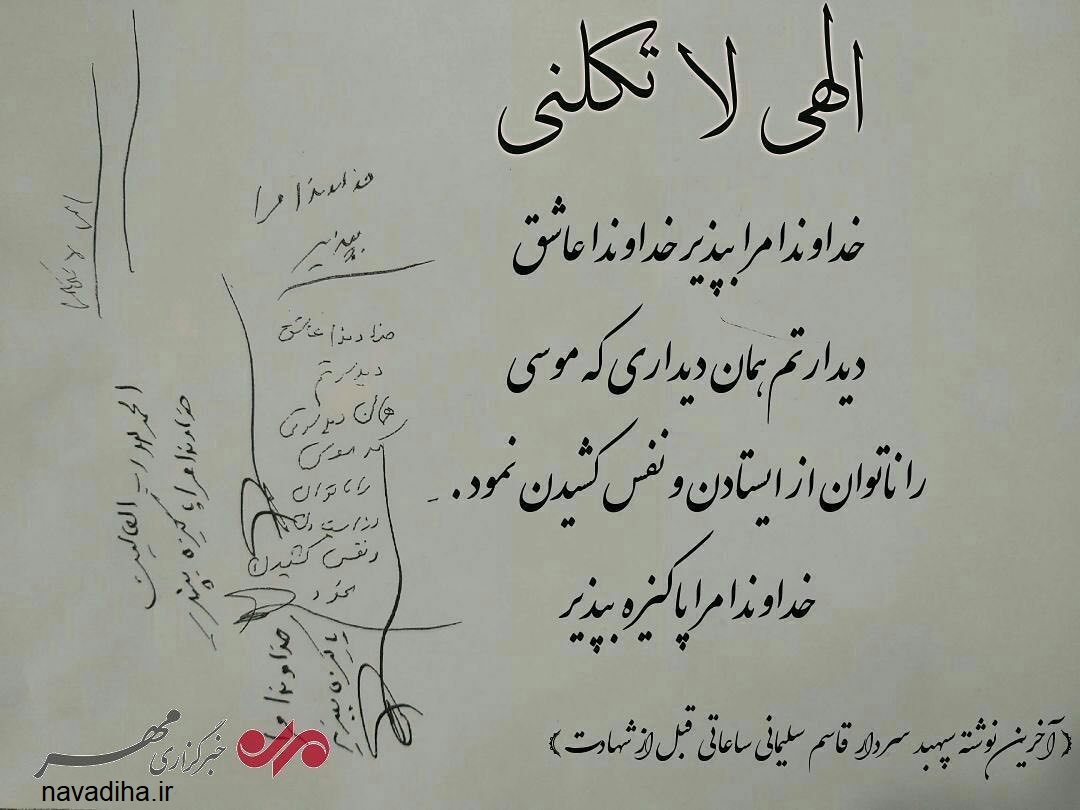 الهی لا تکلنی
خداوندا مرا بپذیر خداوندا عاشق
دیدارتم همان دیداری که موسی
را ناتوان از ایستادن و نفس کشیدن نمود.
خداوندا مرا پاکیزه بپذیر
﴿آخرین نوشته سپهبد سردار قاسم سلیمانی ساعاتی قبل از شهادت﴾
خداوندا مرا
بپذیر
خداوندا عاشق
دیدارتم
همان دیداری
که موسی
را ناتوان
از ایستادن
و نفس کشیدن
نمود
خداوندا مرا
پاکیزه بپذیر
الحمد لله رب العالمین
خداوندا مرا پاکیزه بپذیر
الهی لا تکلنی
خبرگزاری مهر
navadiha.ir